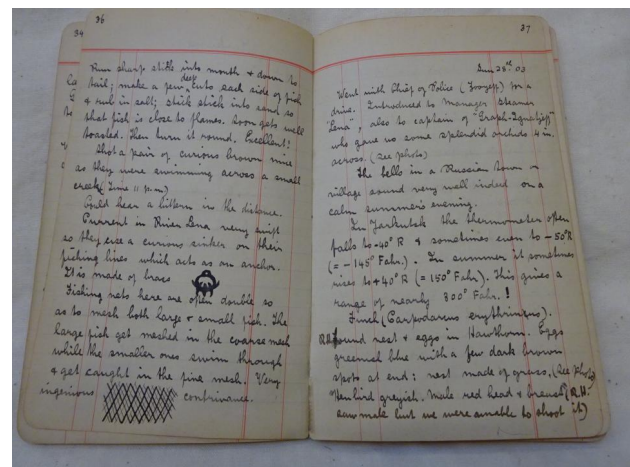 36
34
Run sharp stick into mouth & down to
tail; make a few deep cuts each side of fish
& rub in salt; stick stick into sand so
that fish is close to flames. Soon gets well
toasted. Then turn it round. Excellent!
Shot a pair of curious brown mice
as they were swimming across a small
creek (Time 11 p.m)
Could hear a bittern in the distance.
Current in River Lena very swift
so they use a curious sinker on their
fishing lines which acts as an anchor.
It is made of brass
Fishing nets here are often double so
as to mesh both large & small fish. The
large fish get meshed in the coarse mesh
while the smaller ones swim through
& get caught in the fine mesh. Very
ingenious contrivance.
37
28th 03
Went with Chief of Police for a
drive. Introduced to Manager Steamer
"Lena", also to captain of "Graph-Ignatieff"
who gave us some splendid orchids 4 in.
across. (See photo)
The bells in a Russian town or
village sound very well indeed on a
calm summer's evening.
In Yarkutsk the thermometer often
falls to -40° R & sometimes even to -50°R
(= -145° Fahr.). In summer it sometimes
rises to +40° R (= 150° Fahr.). This gives a
range of nearly 300° Fahr. !
Finch (Carpodacus erythrinus).
R.H. found nest & eggs in Hawthorn. Eggs
greenish blue with a few dark brown
spots at end: nest made of grass. (See photo)
Hen bird greyish. Male red head & breast (R.H.
saw male but we were unable to shoot it)